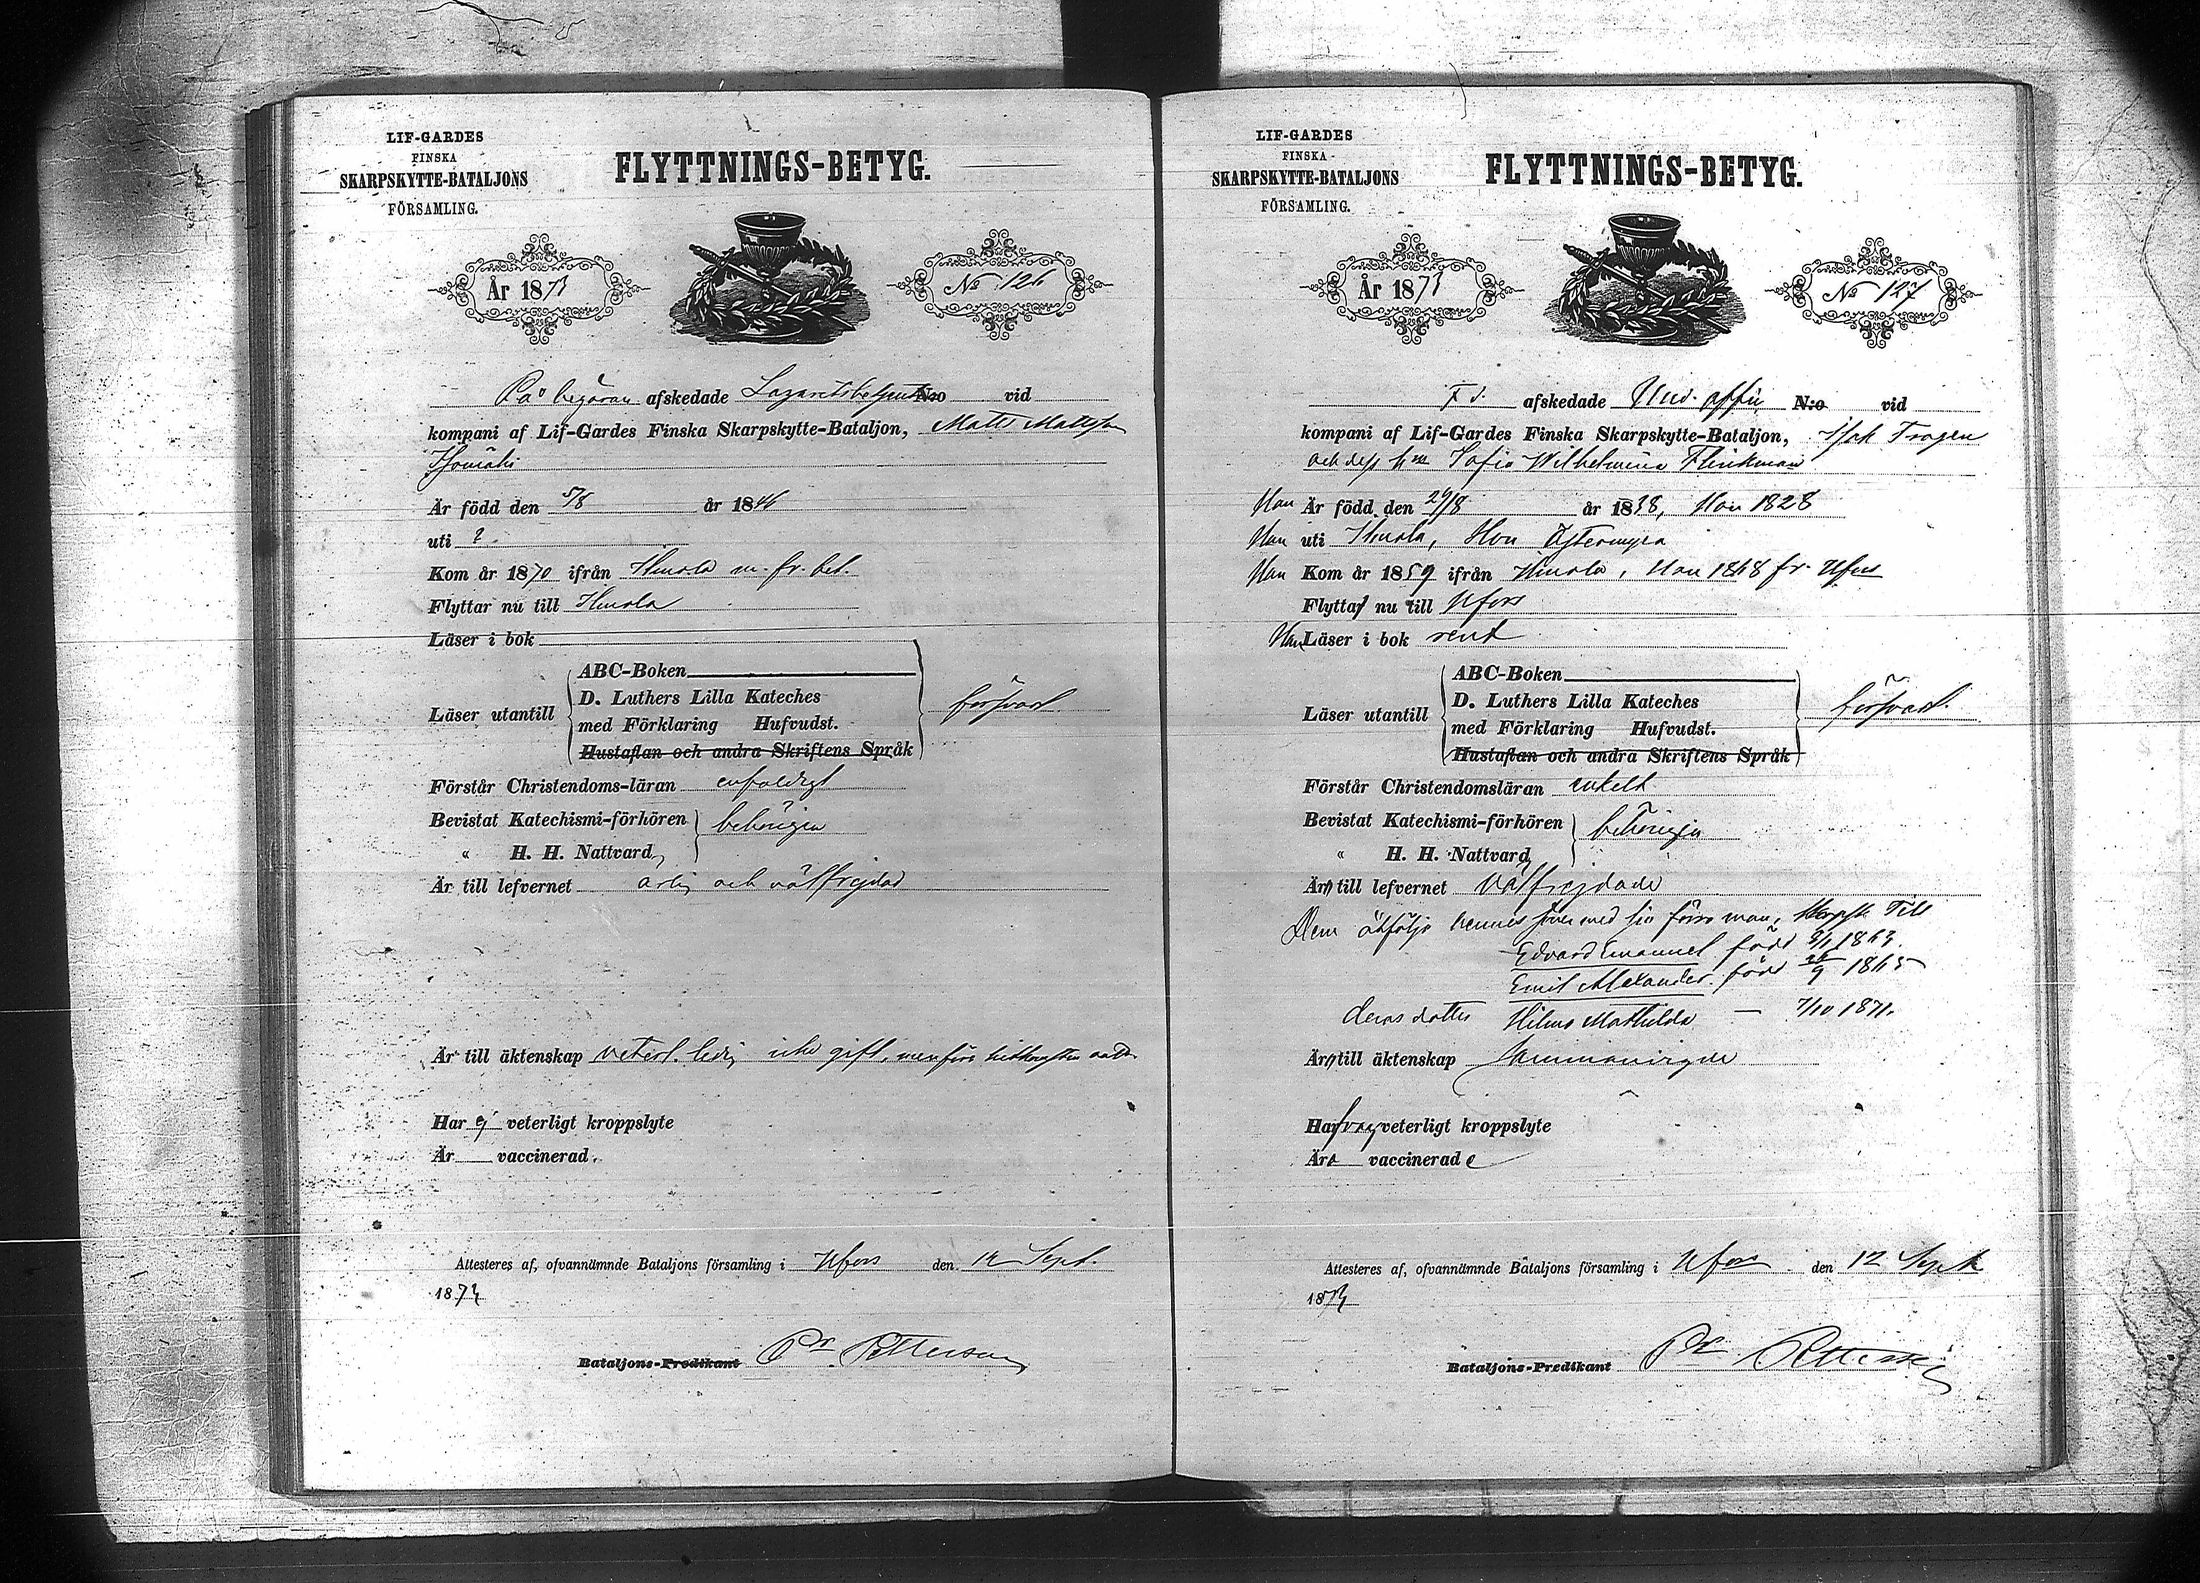 LIF-GARDES
FINSKA
SKARPSKYTTE-BATALJONS
FÖRSAMLING.
FLYTTNINGS-BETYG.
År 1873
No 126
På begäran afskedade Lazarettsbetjent N:o vid
kompani af Lif-Gardes Finska Skarpskytte-Bataljon, Matts Mattsson
Är född den 5/8 år 1846
uti ?
Kom år 1870 ifrån Himola m. fr. bet.
Flyttar nu till Himola
Läser i bok
ABC-Boken
Läser utantill D. Luthers Lilla Kateches
med Förklaring Hufvudst. försvarl.
Hustaflan och andra Skriftens Språk
Förstår Christendoms-läran enfaldigt
Bevistat Katechismi-förhören behörigen
« H. H. Nattvard
Är till lefvernet ärlig och välfrejdad
Är till äktenskap veterl. ledig icke gift, men före
Har ej veterligt kroppslyte
Är vaccinerad.
Attesteres af, ofvannämnde Bataljons församling i Hfors den 12 Sept.
1873
Bataljons-Predikant Pr. Petterson
LIF-GARDES
FINSKA
SKARPSKYTTE-BATALJONS
FÖRSAMLING.
FLYTTNINGS-BETYG.
År 1873
No 127
F d. afskedade Und. offic. N:o vid
kompani af Lif-Gardes Finska Skarpskytte-Bataljon, Isak Trogen
och dess h:u Sofia Wilhelmina Flinkman
Han Är född den 29/8 år 1838, Hon 1828
Han uti Himola, Hon Östermyra
Han Kom år 1859 ifrån Himola, Hon 1868 fr. Hfors
Flytta nu till Hfors
Han Läser i bok rent
ABC-Boken
Läser utantill D. Luthers Lilla Kateches
med Förklaring Hufvudst. försvarl.
Hustaflan och andra Skriftens Språk
Förstår Christendomsläran enkelt
Bevistat Katechismi-förhören behörigen
« H. H. Nattvard
Äro till lefvernet välfrejdade
Dem åtfölja hennes söner med sin förra man, Skarpsk. Till
Edvard Emanuel född 2/1 1863.
Emil Alexander född 26/9 1865
deras dotter Hilma Mathilda — 7/10 1871.
Äro till äktenskap sammanvigde
Har veterligt kroppslyte
Äro vaccinerade
Attesteres af, ofvannämnde Bataljons församling i Hfors den 12 Sept
1873
Bataljons-Predikant Pr. Petterson